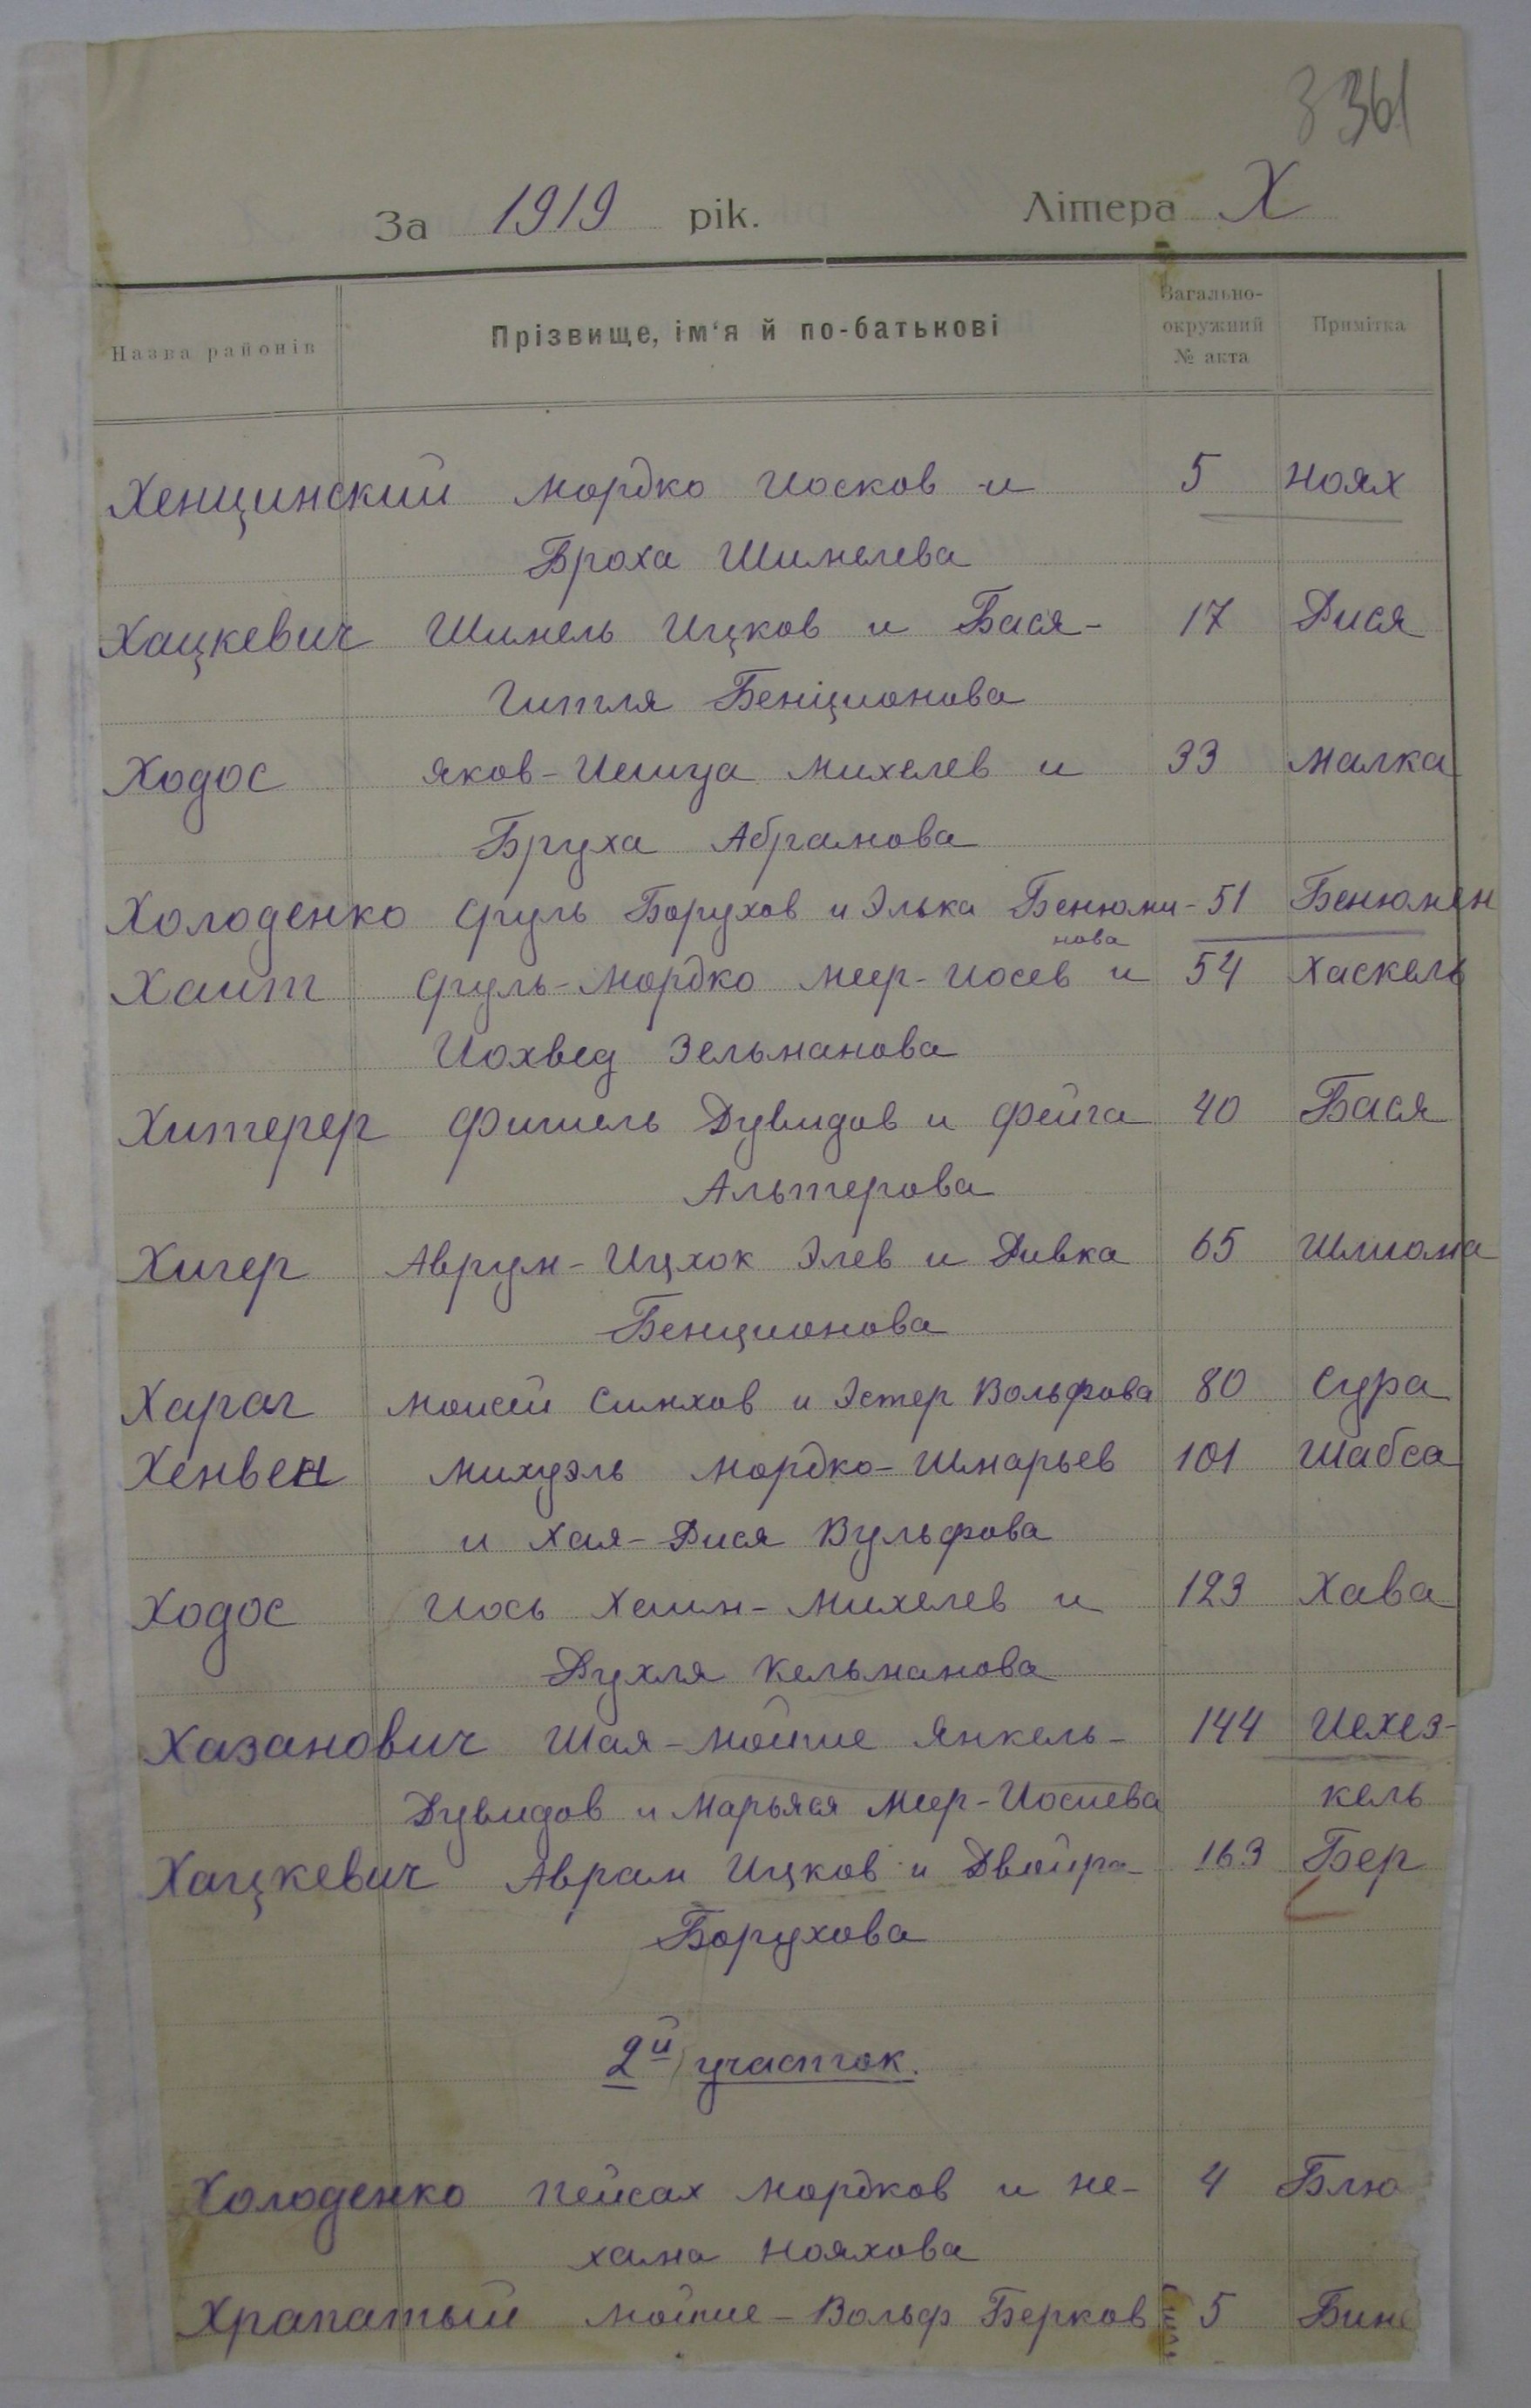 361
За 1919 рік. Літера Х
Назва районів Прізвище, ім'я й по-батькові Загально-окружний № акта Примітка
Хенцинский Мордко Иосков и 5 Ноях
Броха Шимелева
Хацкевич Шимель Ицков и Бася- 17 Рися
Гитля Бенционова
Ходос Яков-Иешуа Михелев и 33 Малка
Бруха Абрамова
Холоденко Сруль Борухов и Элька Бенюми- 51 Бенюмен
нова
Хаит Сруль-Мордко Меер-Иосев и 54 Хаскель
Иохвед Зельманова
Хитерер Фишель Дувидов и Фейга 40 Бася
Альтерова
Хигер Аврум-Ицхок Элев и Ривка 65 Шлиома
Бенционова
Хараг Моисей Симхов и Эстер Вольфова 80 Сура
Хенвен Михуэль Мордко-Шмарьев 101 Шабса
и Хая-Рися Вульфова
Ходос Иось Хаим-Михелев и 123 Хава
Рухля Кельманова
Хазанович Шая-Мойше Янкель- 144 Иехез-
Дувидов и Марьяся Меер-Иосиева кель
Хацкевич Аврам Ицков и Двойра 163 Бер
Борухова
2й участок.
Холоденко Пейсах Мордков и Не- 4 Блю
хама Нояхова
Храпатый Мойше-Вольф Берков 5 Бин